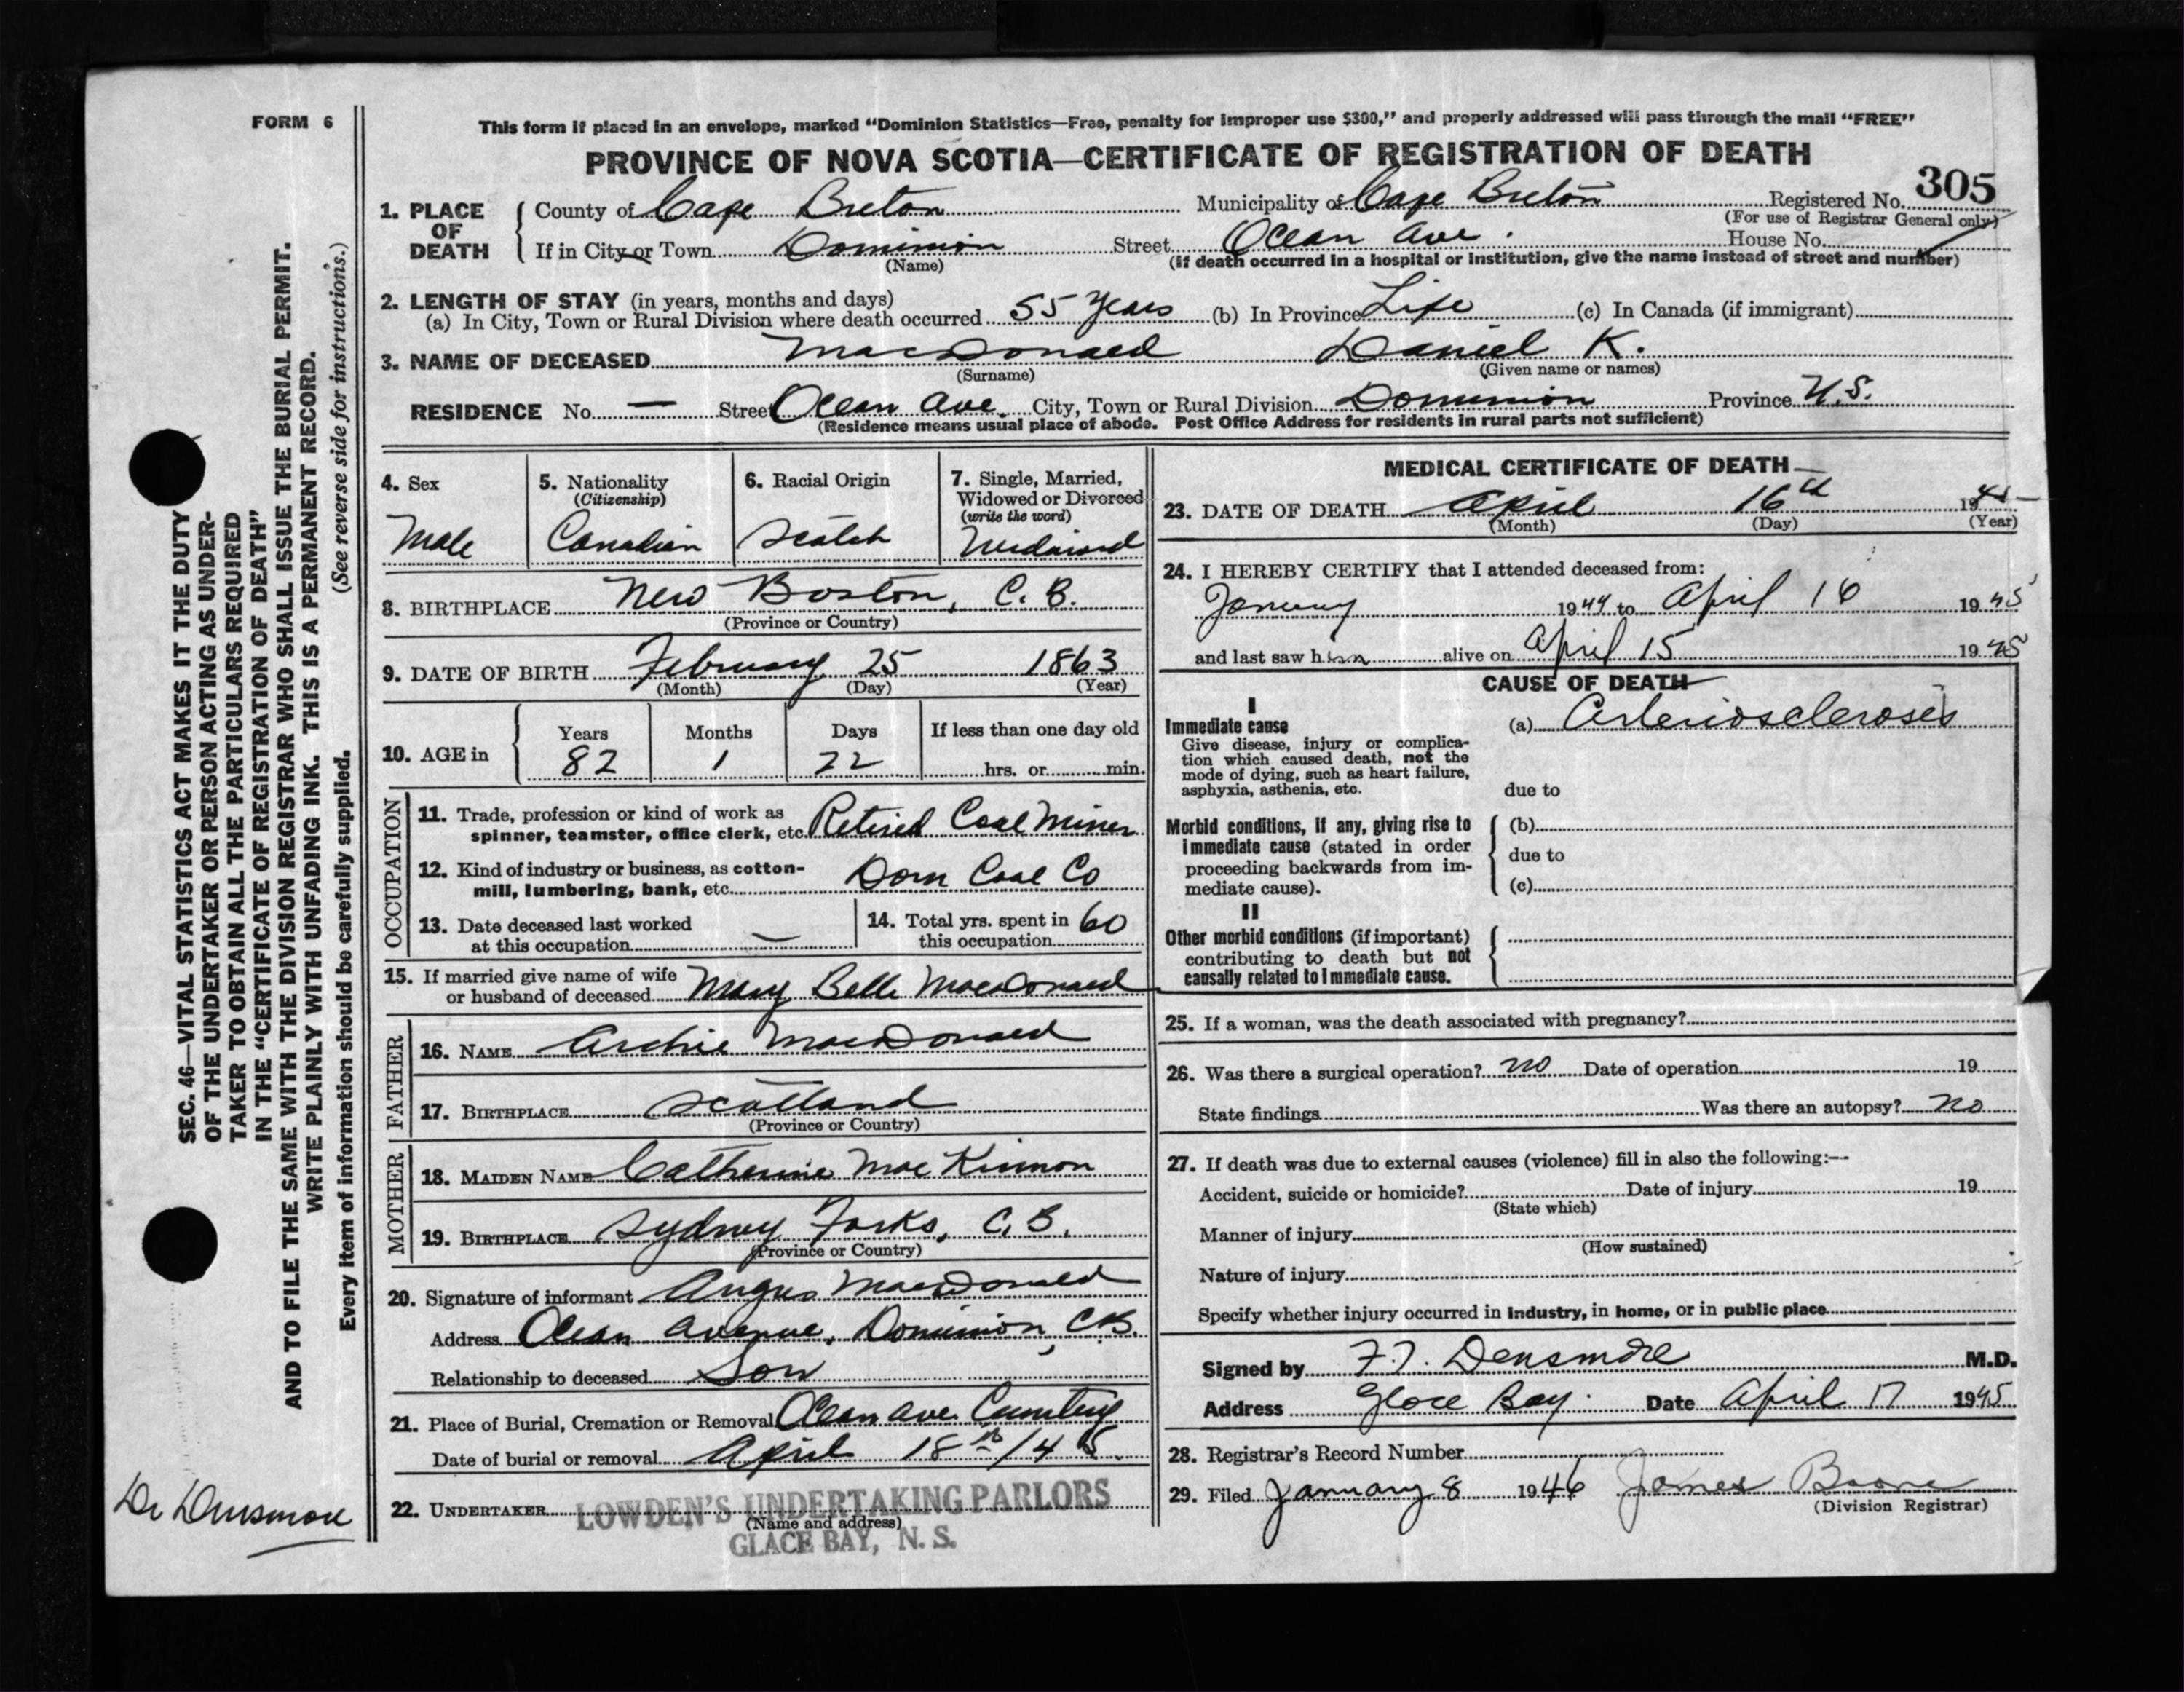 FORM 6
This form if placed in an envelope, marked "Dominion Statistics—Free, penalty for improper use $300," and properly addressed will pass through the mail "FREE"
PROVINCE OF NOVA SCOTIA—CERTIFICATE OF REGISTRATION OF DEATH
305
1. PLACE OF DEATH County of Cape Breton Municipality of Cape Breton Registered No.
(For use of Registrar General only)
If in City or Town Dominion Street Ocean Ave. House No.
(Name) (If death occurred in a hospital or institution, give the name instead of street and number)
2. LENGTH OF STAY (in years, months and days)
(a) In City, Town or Rural Division where death occurred 55 Years (b) In Province Life (c) In Canada (if immigrant)
3. NAME OF DECEASED MacDonald Daniel K.
(Surname) (Given name or names)
RESIDENCE No. — Street Ocean Ave. City, Town or Rural Division Dominion Province N.S.
(Residence means usual place of abode. Post Office Address for residents in rural parts not sufficient)
4. Sex
Male
5. Nationality
(Citizenship)
Canadian
6. Racial Origin
Scotch
7. Single, Married,
Widowed or Divorced
(write the word)
Widowed
8. BIRTHPLACE New Boston, C. B.
(Province or Country)
9. DATE OF BIRTH February 25 1863
(Month) (Day) (Year)
10. AGE in Years Months Days If less than one day old
82 1 22 hrs. or min.
OCCUPATION
11. Trade, profession or kind of work as
spinner, teamster, office clerk, etc. Retired Coal Miner
12. Kind of industry or business, as cotton-
mill, lumbering, bank, etc. Dom Coal Co
13. Date deceased last worked
at this occupation —
14. Total yrs. spent in
this occupation 60
15. If married give name of wife
or husband of deceased Mary Belle MacDonald
FATHER
16. NAME Archie MacDonald
17. BIRTHPLACE Scotland
(Province or Country)
MOTHER
18. MAIDEN NAME Catherine MacKinnon
19. BIRTHPLACE Sydney Forks, C. B.
(Province or Country)
20. Signature of informant Angus MacDonald
Address Ocean Avenue, Dominion, C.B.
Relationship to deceased Son
21. Place of Burial, Cremation or Removal Ocean Ave Cemetery
Date of burial or removal April 18th/45.
22. UNDERTAKER LOWDEN'S UNDERTAKING PARLORS
(Name and address)
GLACE BAY, N. S.
MEDICAL CERTIFICATE OF DEATH
23. DATE OF DEATH April 16th 1945
(Month) (Day) (Year)
24. I HEREBY CERTIFY that I attended deceased from:
January 1944 to April 16 1945
and last saw him alive on April 15 1945
CAUSE OF DEATH
I
Immediate cause (a) Arteriosclerosis
Give disease, injury or complica-
tion which caused death, not the
mode of dying, such as heart failure,
asphyxia, asthenia, etc. due to
Morbid conditions, if any, giving rise to (b)
immediate cause (stated in order due to
proceeding backwards from im-
mediate cause). (c)
II
Other morbid conditions (if important)
contributing to death but not
causally related to immediate cause.
25. If a woman, was the death associated with pregnancy?
26. Was there a surgical operation? no Date of operation 19
State findings Was there an autopsy? no
27. If death was due to external causes (violence) fill in also the following:—
Accident, suicide or homicide? Date of injury 19
(State which)
Manner of injury
(How sustained)
Nature of injury
Specify whether injury occurred in industry, in home, or in public place
Signed by F.T. Densmore M.D.
Address Glace Bay. Date April 17 1945
28. Registrar's Record Number
29. Filed January 8 1946 James Boone
(Division Registrar)
SEC. 46—VITAL STATISTICS ACT MAKES IT THE DUTY
OF THE UNDERTAKER OR PERSON ACTING AS UNDER-
TAKER TO OBTAIN ALL THE PARTICULARS REQUIRED
IN THE "CERTIFICATE OF REGISTRATION OF DEATH"
AND TO FILE THE SAME WITH THE DIVISION REGISTRAR WHO SHALL ISSUE THE BURIAL PERMIT.
WRITE PLAINLY WITH UNFADING INK. THIS IS A PERMANENT RECORD.
Every item of information should be carefully supplied. (See reverse side for instructions.)
Dr Densmore